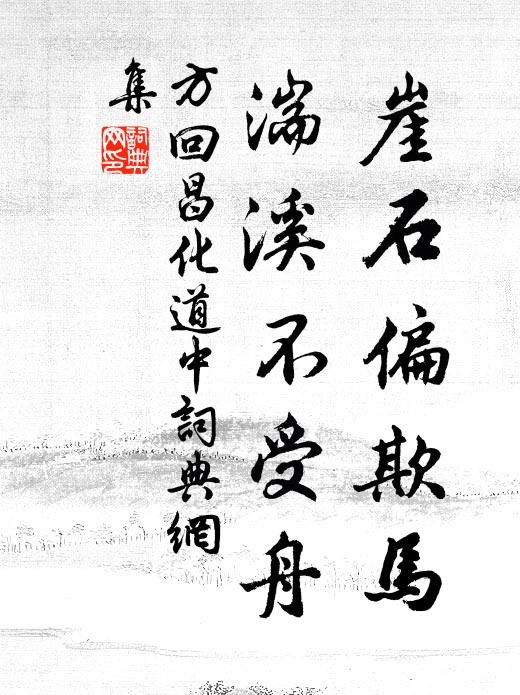 崖石偏欺馬
湍溪不受舟
方回昌化道中詞典網
集
詞典網印